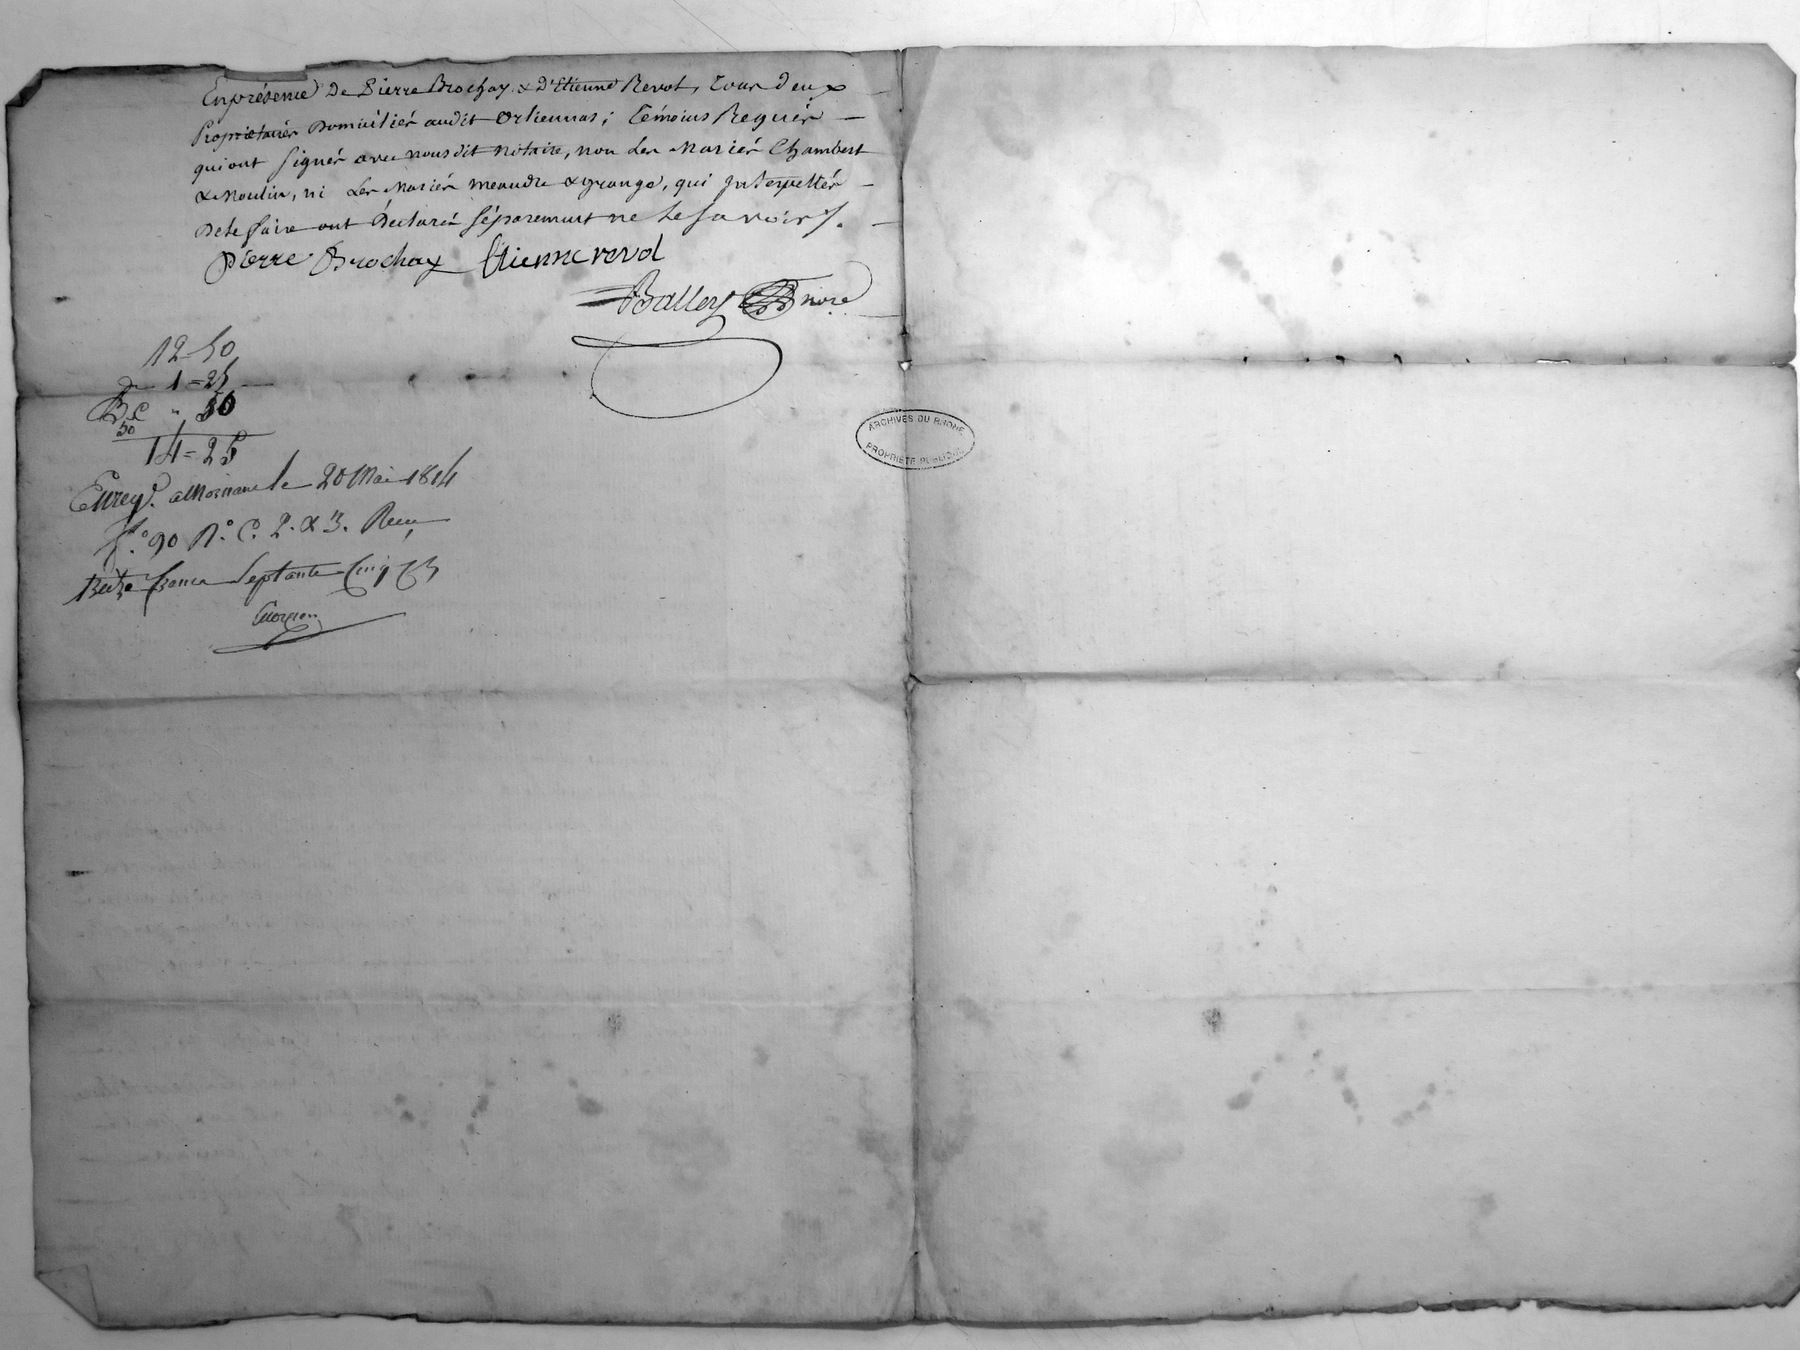 En présence De Pierre Brochay & D'Etienne Revol, tous deux
Propriétaires Domiciliés audit Orliennas ; témoins Requis
qui ont signés avec nous dit notaire, non les Mariés Chambert
& Moulin, ni les Mariés meaudre & grange, qui Interpellés
De le faire ont Déclarés séparement ne le savoir.
Pierre Brochay Etienne revol
Balley nore
12-50
1=25
50
14=25
Enreg. a Mornant le 20 Mai 1814
f.° 90 R.° C. 2. & 3. Recu
francs septante cinq
ARCHIVES DU RHONE
PROPRIÉTÉ PUBLIQUE